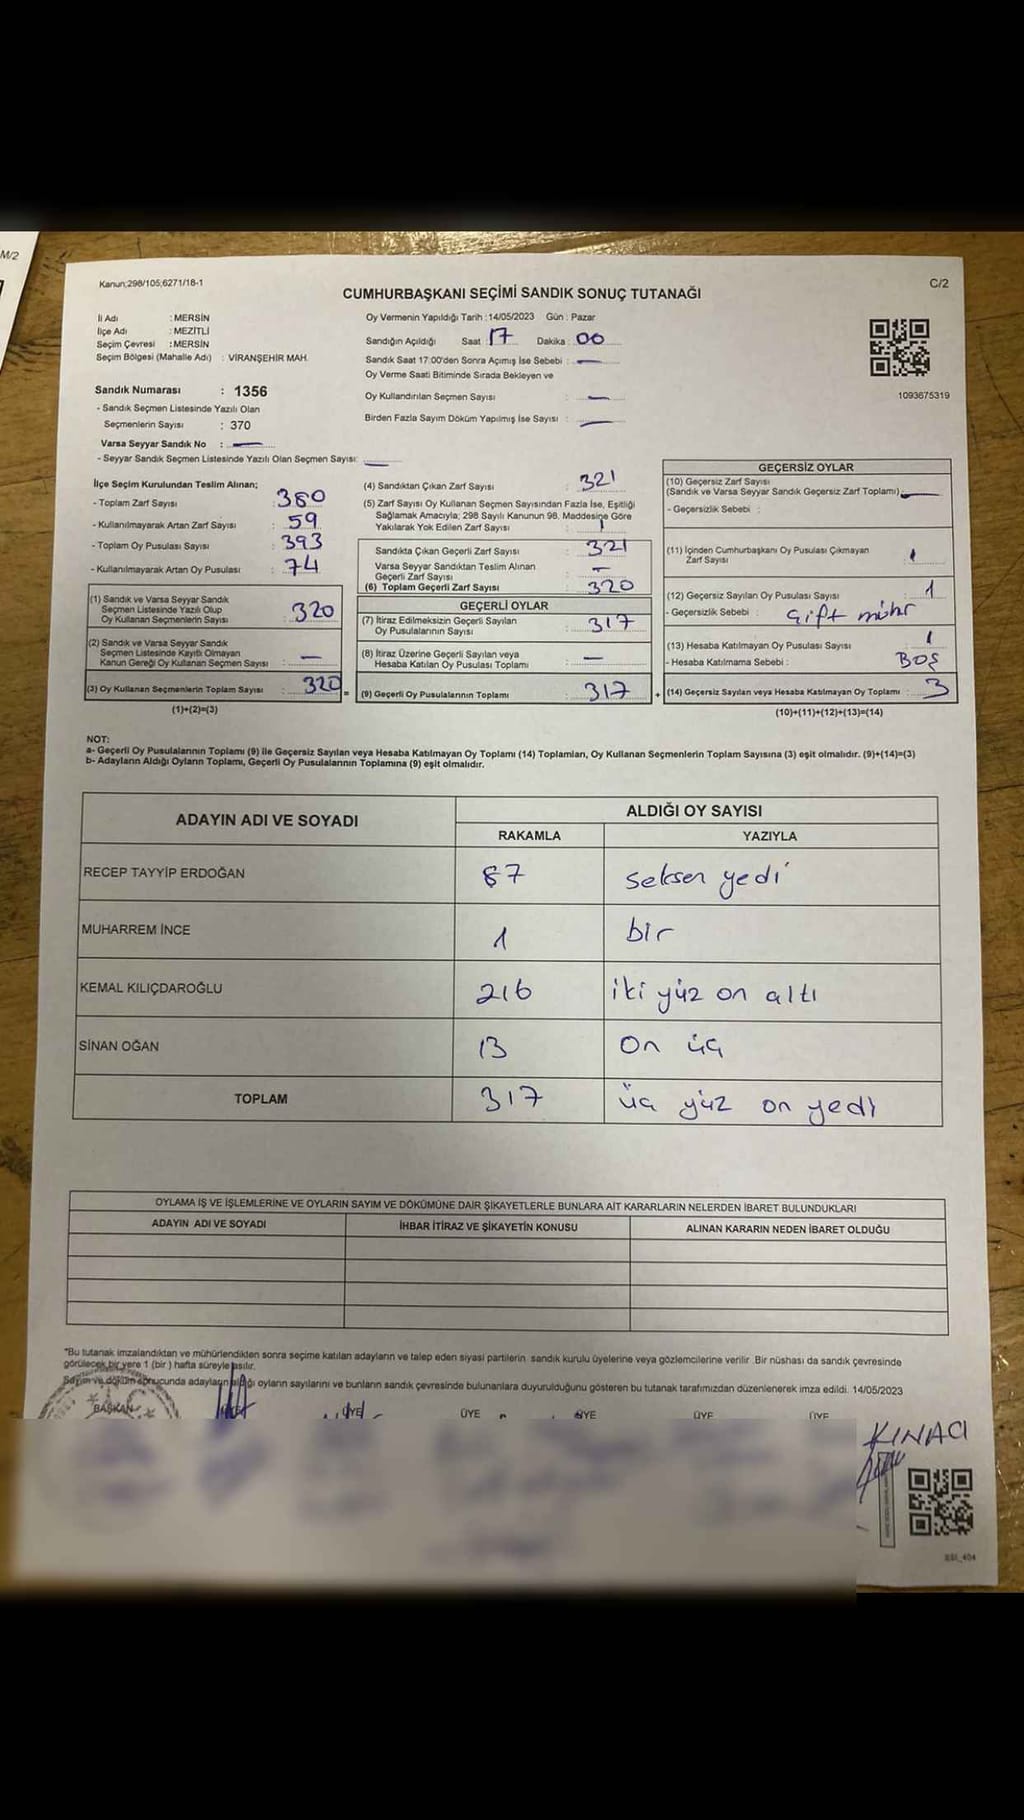 M/2
Kanun;298/105;6271/18-1
C/2
CUMHURBAŞKANI SEÇİMİ SANDIK SONUÇ TUTANAĞI
İl Adı : MERSİN
İlçe Adı : MEZİTLİ
Seçim Çevresi : MERSİN
Seçim Bölgesi (Mahalle Adı) : VİRANŞEHİR MAH.
Sandık Numarası : 1356
- Sandık Seçmen Listesinde Yazılı Olan
Seçmenlerin Sayısı : 370
Varsa Seyyar Sandık No : —
- Seyyar Sandık Seçmen Listesinde Yazılı Olan Seçmen Sayısı: —
Oy Vermenin Yapıldığı Tarih : 14/05/2023 Gün : Pazar
Sandığın Açıldığı Saat : 17 Dakika : 00
Sandık Saat 17:00'den Sonra Açımış İse Sebebi : —
Oy Verme Saati Bitiminde Sırada Bekleyen ve
Oy Kullandırılan Seçmen Sayısı : —
Birden Fazla Sayım Döküm Yapılmış İse Sayısı : —
1093675319
İlçe Seçim Kurulundan Teslim Alınan;
- Toplam Zarf Sayısı : 380
- Kullanılmayarak Artan Zarf Sayısı : 59
- Toplam Oy Pusulası Sayısı : 393
- Kullanılmayarak Artan Oy Pusulası : 74
(1) Sandık ve Varsa Seyyar Sandık
Seçmen Listesinde Yazılı Olup
Oy Kullanan Seçmenlerin Sayısı : 320
(2) Sandık ve Varsa Seyyar Sandık
Seçmen Listesinde Kayıtlı Olmayan
Kanun Gereği Oy Kullanan Seçmen Sayısı : —
(3) Oy Kullanan Seçmenlerin Toplam Sayısı : 320 =
(1)+(2)=(3)
(4) Sandıktan Çıkan Zarf Sayısı : 321
(5) Zarf Sayısı Oy Kullanan Seçmen Sayısından Fazla İse, Eşitliği
Sağlamak Amacıyla; 298 Sayılı Kanunun 98. Maddesine Göre
Yakılarak Yok Edilen Zarf Sayısı : 1
Sandıkta Çıkan Geçerli Zarf Sayısı : 321
Varsa Seyyar Sandıktan Teslim Alınan
Geçerli Zarf Sayısı : —
(6) Toplam Geçerli Zarf Sayısı : 320
GEÇERLİ OYLAR
(7) İtiraz Edilmeksizin Geçerli Sayılan
Oy Pusulalarının Sayısı : 317
(8) İtiraz Üzerine Geçerli Sayılan veya
Hesaba Katılan Oy Pusulası Toplamı : —
(9) Geçerli Oy Pusulalarının Toplamı : 317 +
GEÇERSİZ OYLAR
(10) Geçersiz Zarf Sayısı
(Sandık ve Varsa Seyyar Sandık Geçersiz Zarf Toplamı) : —
- Geçersizlik Sebebi :
(11) İçinden Cumhurbaşkanı Oy Pusulası Çıkmayan
Zarf Sayısı : 1
(12) Geçersiz Sayılan Oy Pusulası Sayısı : 1
- Geçersizlik Sebebi : Çift mühr
(13) Hesaba Katılmayan Oy Pusulası Sayısı : 1
- Hesaba Katılmama Sebebi : BOŞ
(14) Geçersiz Sayılan veya Hesaba Katılmayan Oy Toplamı : 3
(10)+(11)+(12)+(13)=(14)
NOT:
a- Geçerli Oy Pusulalarının Toplamı (9) ile Geçersiz Sayılan veya Hesaba Katılmayan Oy Toplamı (14) Toplamları, Oy Kullanan Seçmenlerin Toplam Sayısına (3) eşit olmalıdır. (9)+(14)=(3)
b- Adayların Aldığı Oyların Toplamı, Geçerli Oy Pusulalarının Toplamına (9) eşit olmalıdır.
ADAYIN ADI VE SOYADI
ALDIĞI OY SAYISI
RAKAMLA YAZIYLA
RECEP TAYYİP ERDOĞAN 87 seksen yedi
MUHARREM İNCE 1 bir
KEMAL KILIÇDAROĞLU 216 iki yüz on altı
SİNAN OĞAN 13 on üç
TOPLAM 317 üç yüz on yedi
OYLAMA İŞ VE İŞLEMLERİNE VE OYLARIN SAYIM VE DÖKÜMÜNE DAİR ŞİKAYETLERLE BUNLARA AİT KARARLARIN NELERDEN İBARET BULUNDUKLARI
ADAYIN ADI VE SOYADI İHBAR İTİRAZ VE ŞİKAYETİN KONUSU ALINAN KARARIN NEDEN İBARET OLDUĞU
*Bu tutanak imzalandıktan ve mühürlendikten sonra seçime katılan adayların ve talep eden siyasi partilerin sandık kurulu üyelerine veya gözlemcilerine verilir. Bir nüshası da sandık çevresinde
görülecek bir yere 1 (bir ) hafta süreyle asılır.
Sayım ve döküm sonucunda adayların aldığı oyların sayılarını ve bunların sandık çevresinde bulunanlara duyurulduğunu gösteren bu tutanak tarafımızdan düzenlenerek imza edildi. 14/05/2023
BAŞKAN ÜYE ÜYE ÜYE ÜYE ÜYE ÜYE
KINACI